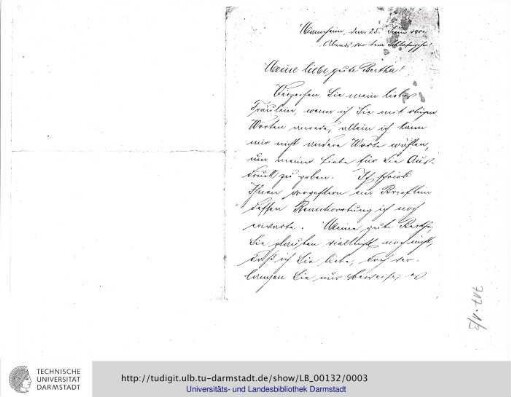 Mannheim, den 25. Juni
Abends vor dem Schlafengehn!
Meine liebe gute Bertha!
Verzeihen Sie mein liebes
Fräulein, wenn ich Sie mit obigen
Worten anrede, allein ich kann
mir nicht andere Worte wählen,
um meiner Liebe für Sie Aus-
druck zu geben. Ich schrieb
Ihnen vorgestern ein Brieflein
dessen Beantwortung ich noch
erwarte. Meine gute Bertha,
Sie glaubten vielleicht noch nicht,
daß ich Sie liebe, doch ver-
langen Sie nur Beweise
TECHNISCHE
UNIVERSITÄT
DARMSTADT
http://tudigit.ulb.tu-darmstadt.de/show/LB_00132/0003
Universitäts- und Landesbibliothek Darmstadt